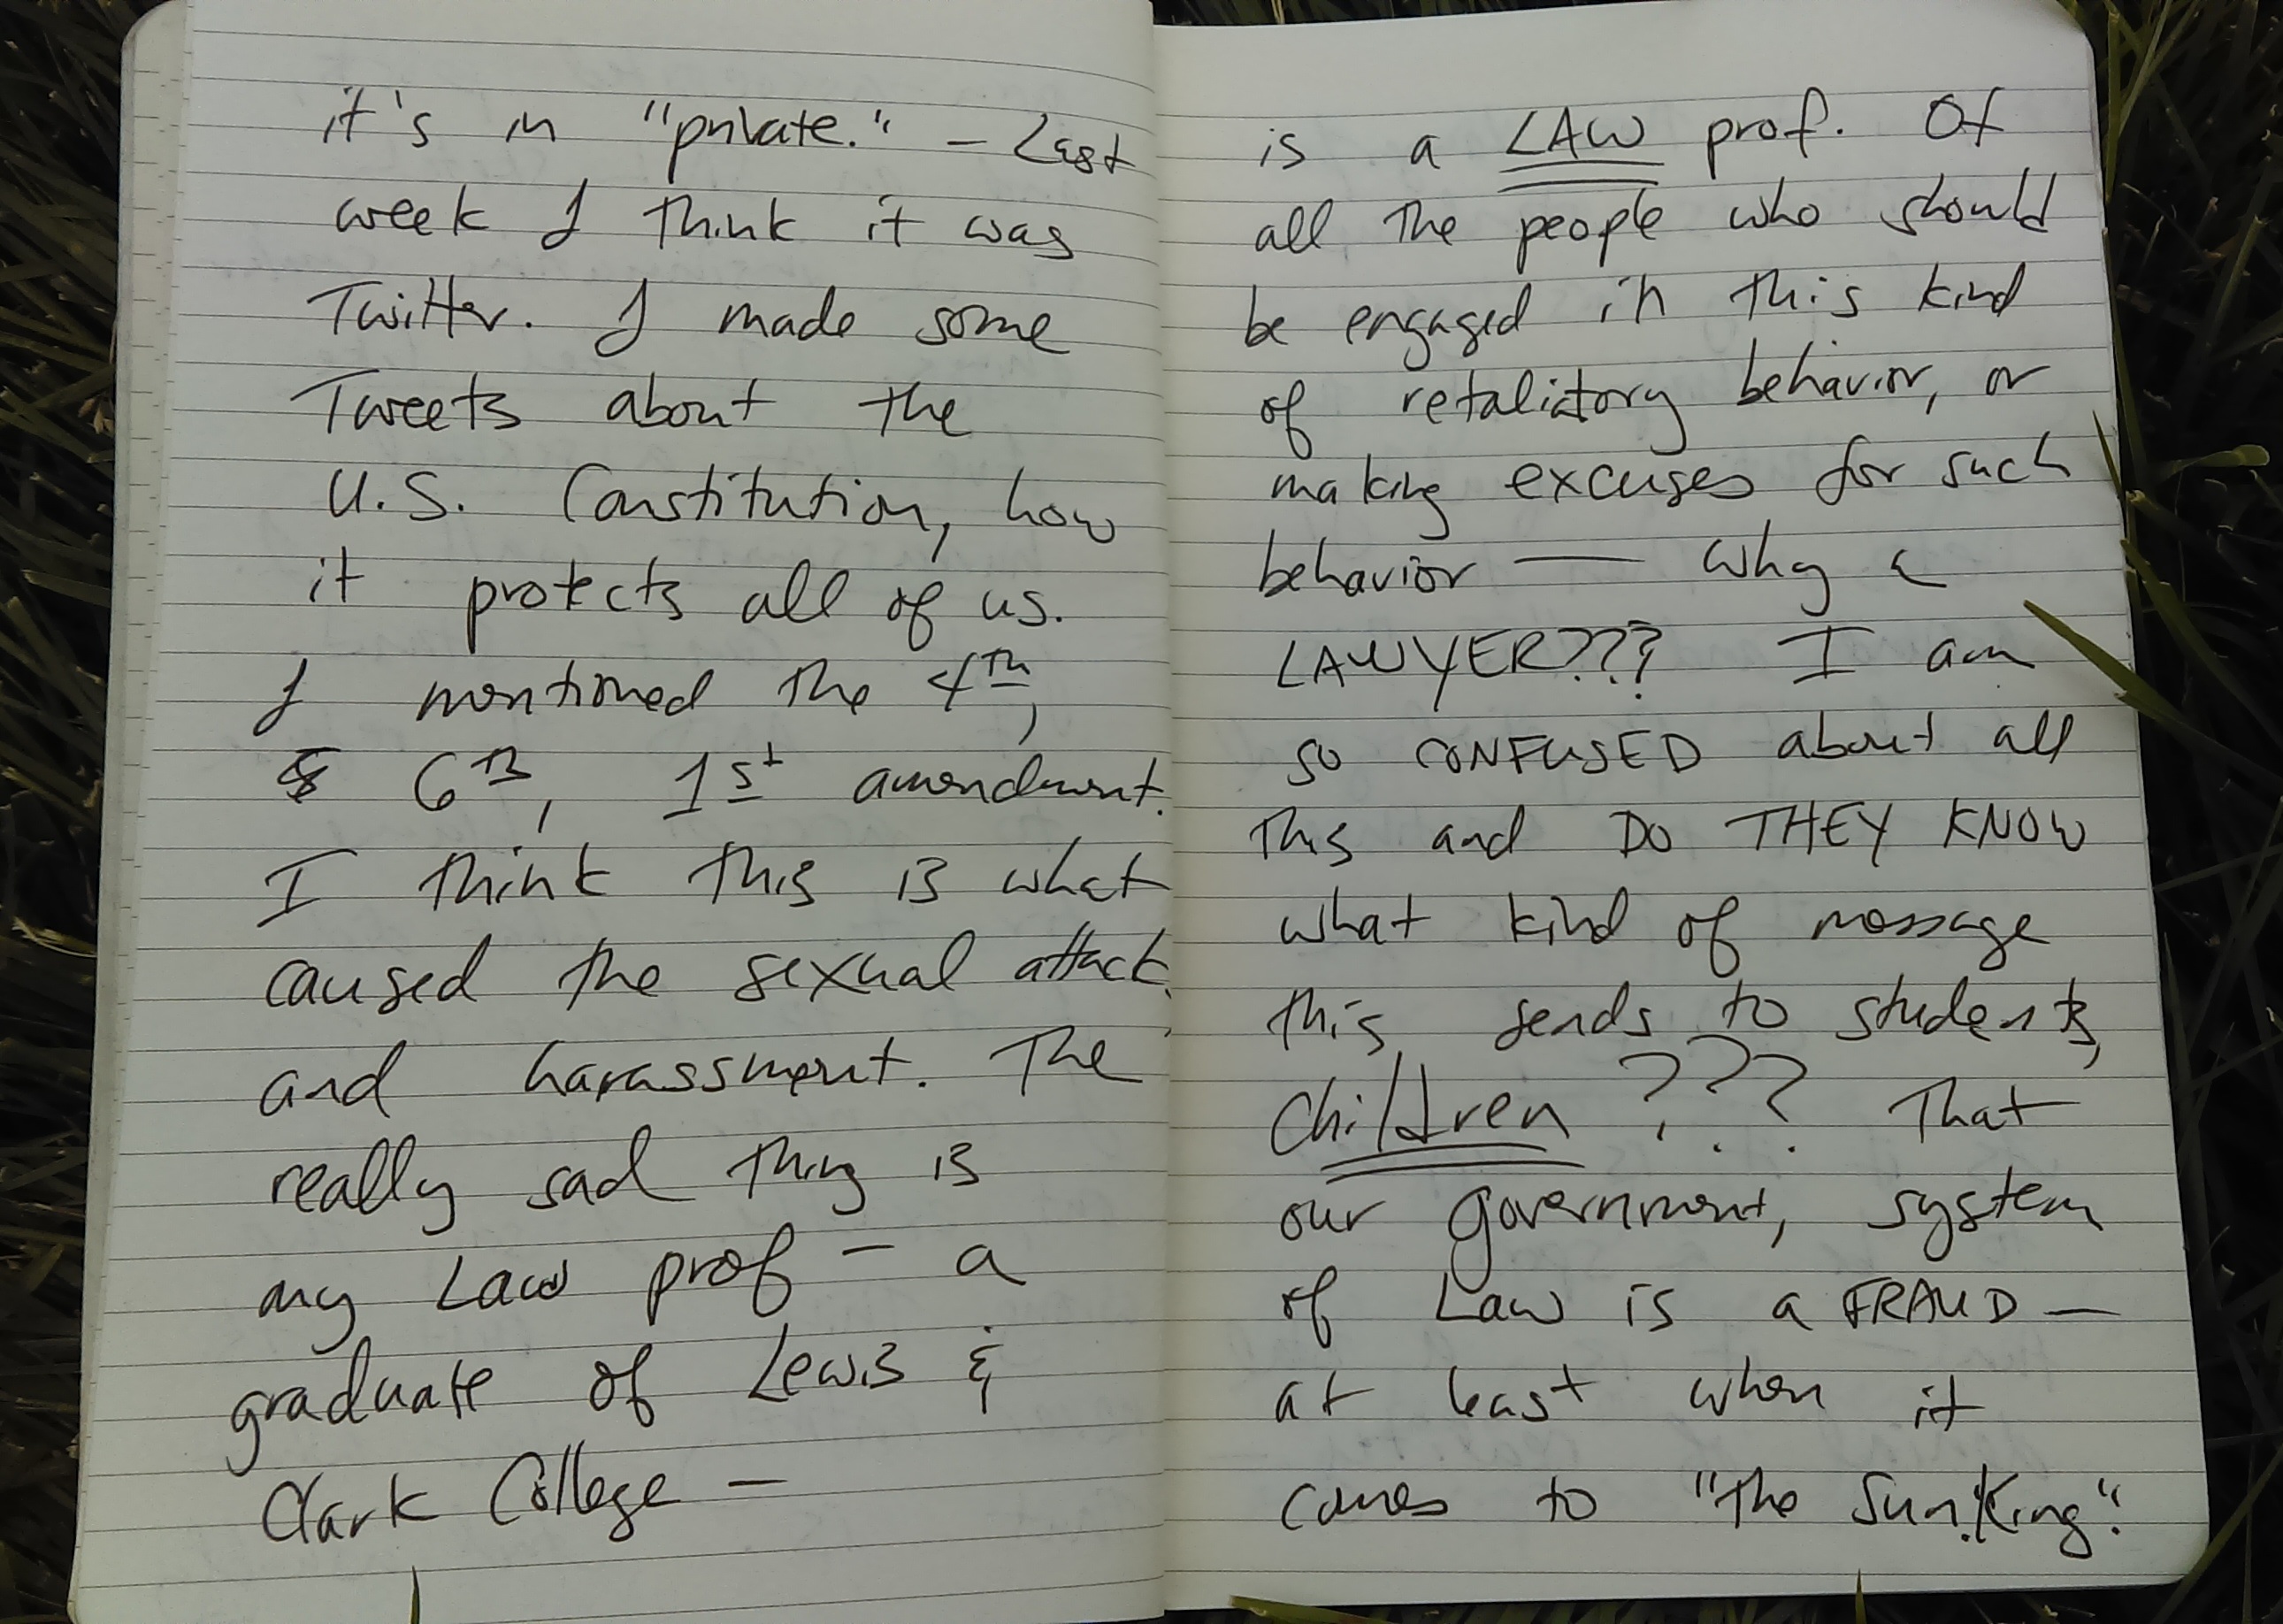 it's in "private." – Last
week I think it was
Twitter. I made some
Tweets about the
U.S. Constitution, how
it protects all of us.
I mentioned the 4th,
& 6th, 1st amendment.
I think this is what
caused the sexual attack
and harassment. The
really sad thing is
my Law prof – a
graduate of Lewis &
Clark College –
is a LAW prof. Of
all the people who should
be engaged in this kind
of retaliatory behavior, or
making excuses for such
behavior — why a
LAWYER??? I am
so CONFUSED about all
this and DO THEY KNOW
what kind of message
this sends to students,
Children ??? That
our government, system
of Law is a FRAUD —
at least when it
comes to "the Sun King".